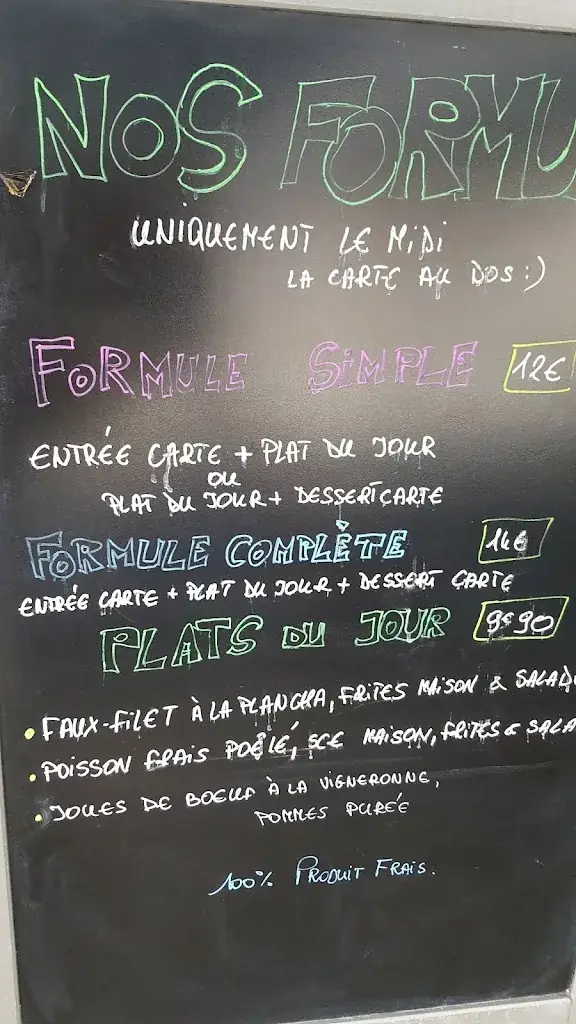 NOS FORMU
UNIQUEMENT LE MIDI
LA CARTE AU DOS :)
FORMULE SIMPLE 12€
ENTRÉE CARTE + PLAT DU JOUR
OU
PLAT DU JOUR + DESSERT CARTE
FORMULE COMPLÈTE 14€
ENTRÉE CARTE + PLAT DU JOUR + DESSERT CARTE
PLATS DU JOUR 9€90
• FAUX-FILET À LA PLANCHA, FRITES MAISON & SALAD
• POISSON FRAIS POÊLÉ, SCE MAISON, FRITES & SALA
• JOUES DE BOEUF À LA VIGNERONNE,
POMMES PURÉE
100% PRODUIT FRAIS.